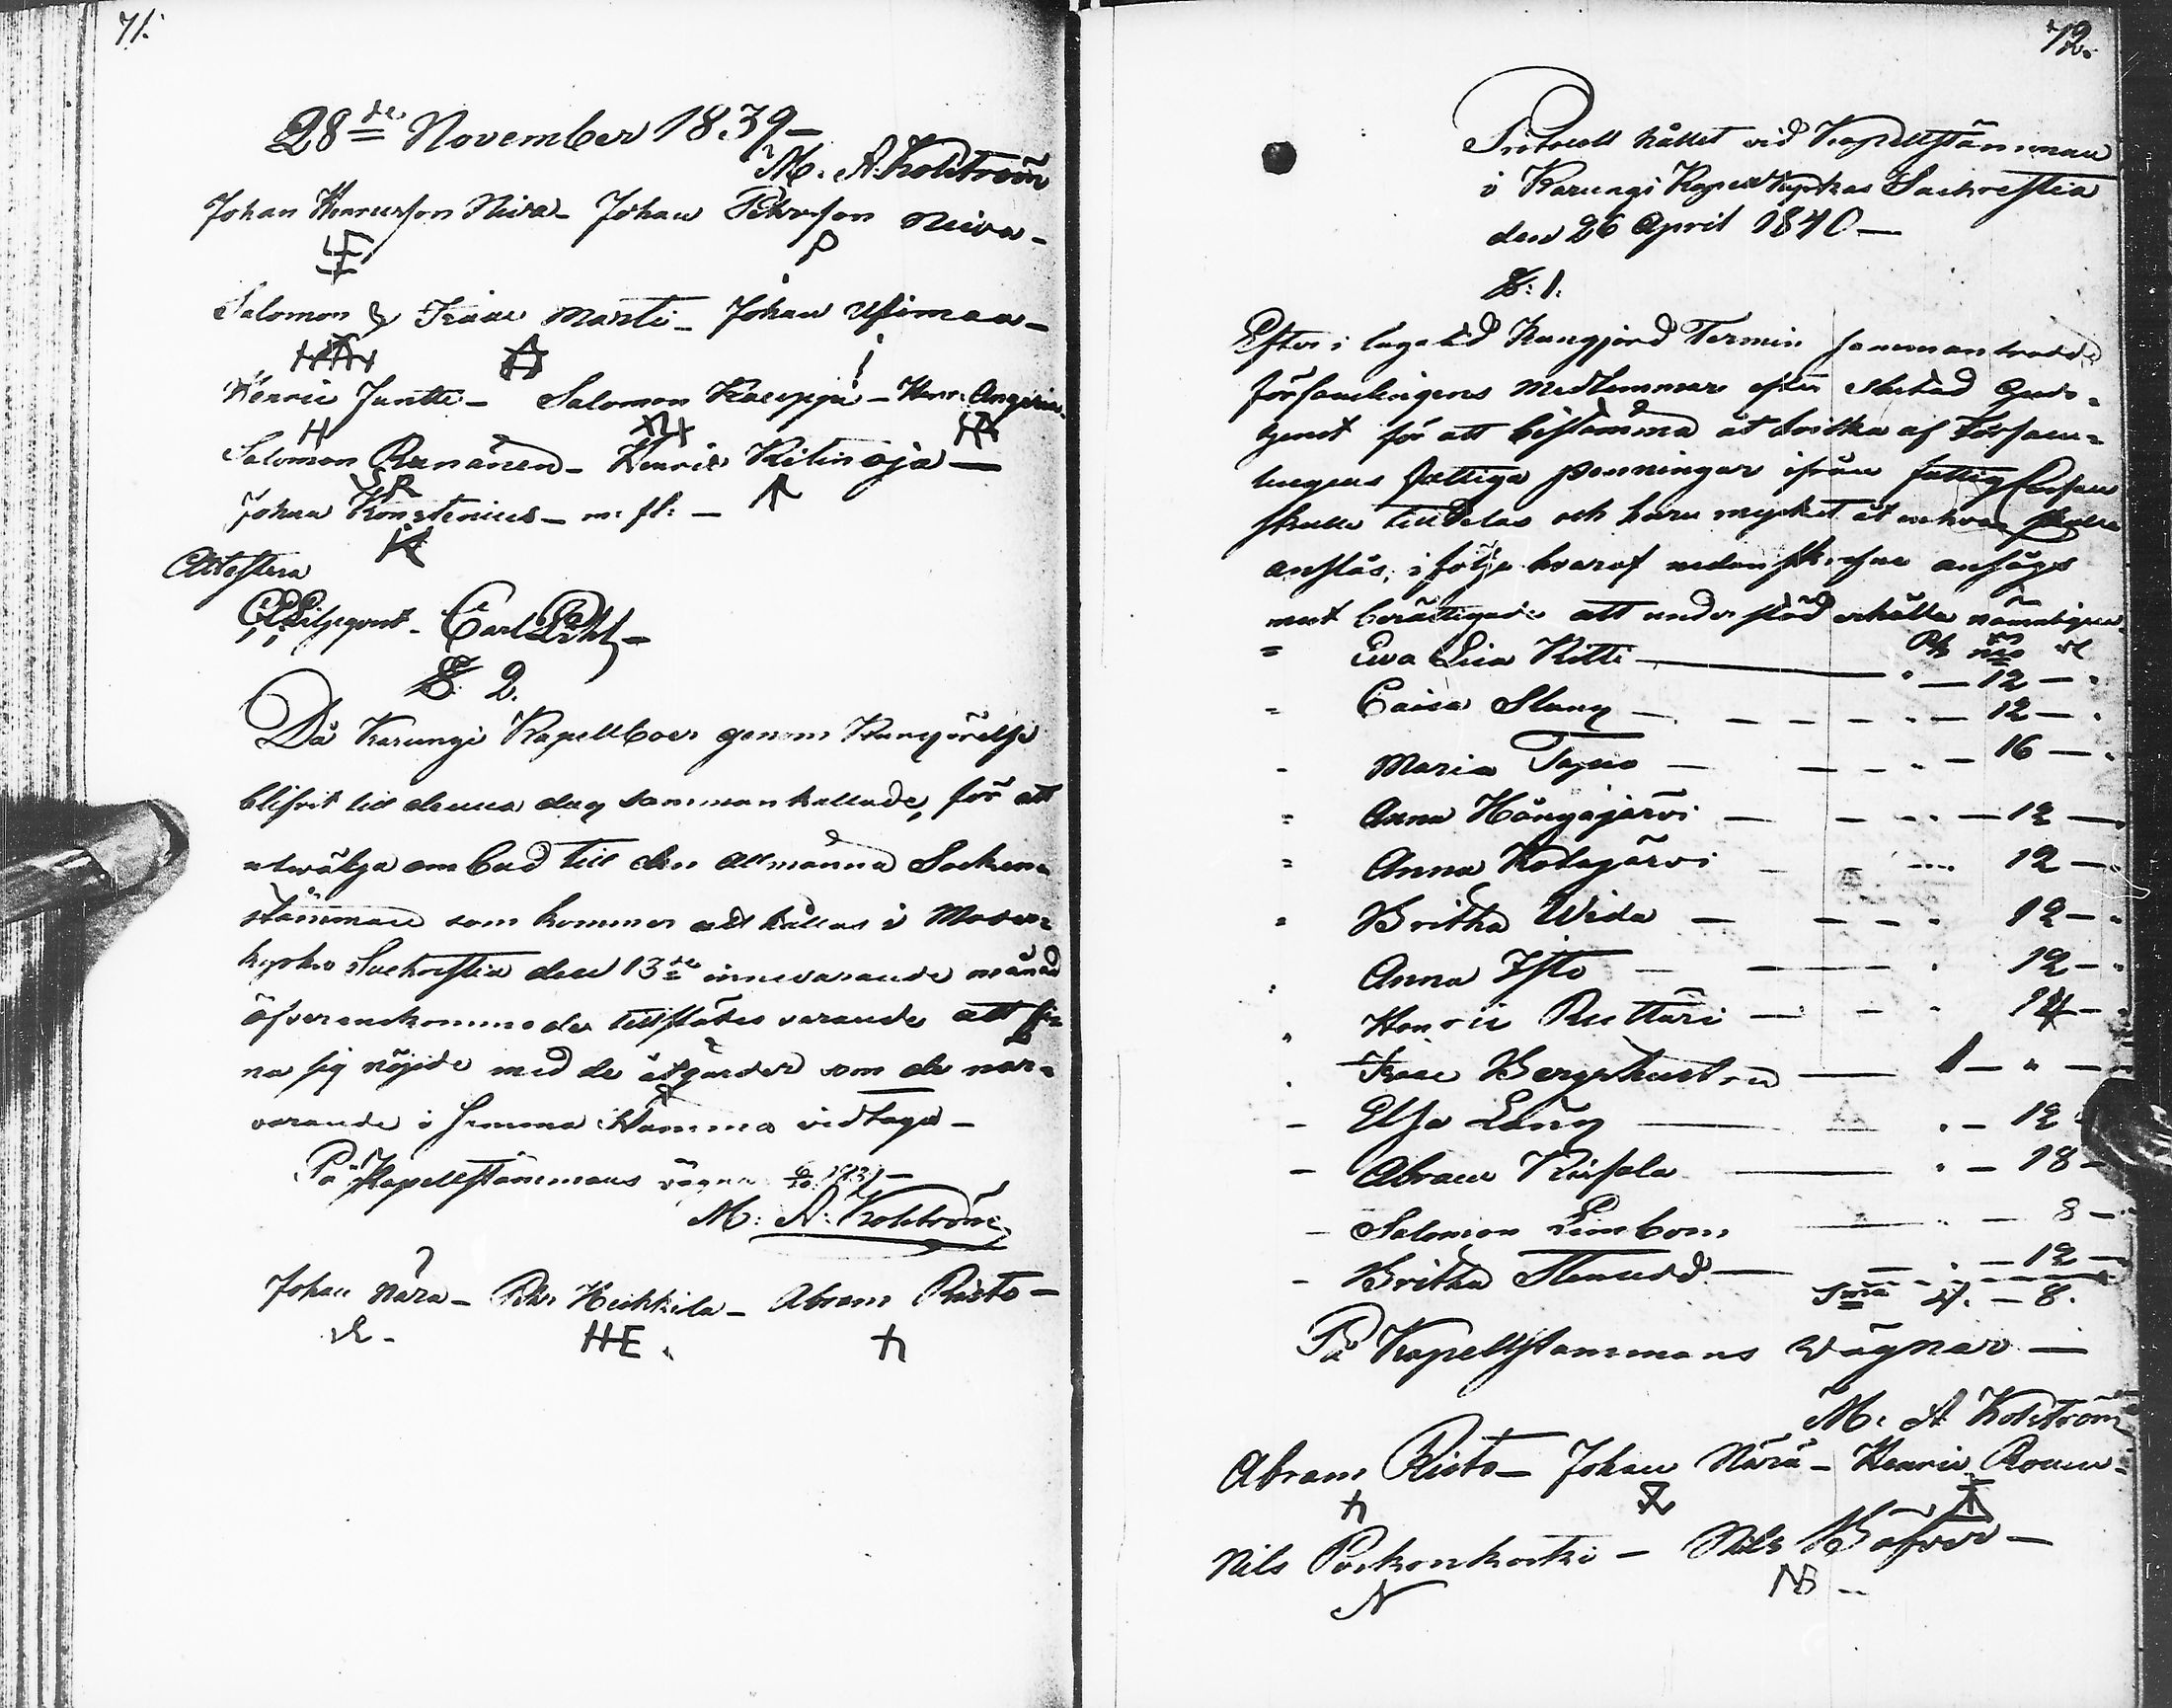 71.
28de November 1839 –
M. A. Kolström
Johan Henricsson Niva – Johan Pehrsson Niva –
P
Salomon & Isaac Marti – Johan Usimaa –
Henric Juntti – Salomon Kauppi – Henr. Angeria
H
Salomon Runänen – Henric Kitinoja –
SR
Johan Konstenius – m. fl. –
Attestera
Liljeqvist – Carl
§ 2.
Då Karungi Kapellboer genom Kungörelse
blifvit till denna dag sammankallade, för att
utwälja ombud till den allmänna Sockne-
stämman som kommer att hållas i Moder-
kyrko Sackrestia den 13de innevarande månad
öfverenskommo de tillstädes varande att fin-
na sig nöjde med de åtgärder som de när-
varande i semma Stämma vidtaga –
På Kapellstämmans vägnar
M. A. Kolström
Johan Nära – Pehr Heikkilä – Abram Risto –
HE.
72.
Protocoll hållet vid Kapellstämman
i Karungi Kapellkyrkas Sackrestia
den 26 April 1840 –
§. 1.
Efter i laga tid Kungjord Termin sammanträdde
församlingens Medlemmar efter slutad Guds-
tjenst för att bestämma åt hvilka af Försam-
lingens fattiga penningar ifrån fattig Cassan
skulle tilldelas och huru mycket åt enhvar skulle
anslås, i följe hvaraf nedanskrefne ansågs
mest berättigade att understöd erhålla nämligen
Eva Lisa Kitti – 12 –
Caisa Slang – 12 –
Maria Tapio – 16 –
Anna Hängäjärvi – 12 –
Anna Kodajärvi – 12 –
Britha Wida – 12 –
Anna Ylto – 12 –
Henric Ruttäri – 14 –
Isaac Bergshustru – 1 – " –
Elsa Lång – 12
Abram Kusala – 18 –
Salomon Limbom – 8 –
Britha Stenudd – 12 –
Sma – 8.
På Kapellstämmans wägnar –
M. A Kolström
Abram Risto – Johan Närä – Henric Rouu –
Nils Porkonkoski – Nils Bäfver –
N NB –